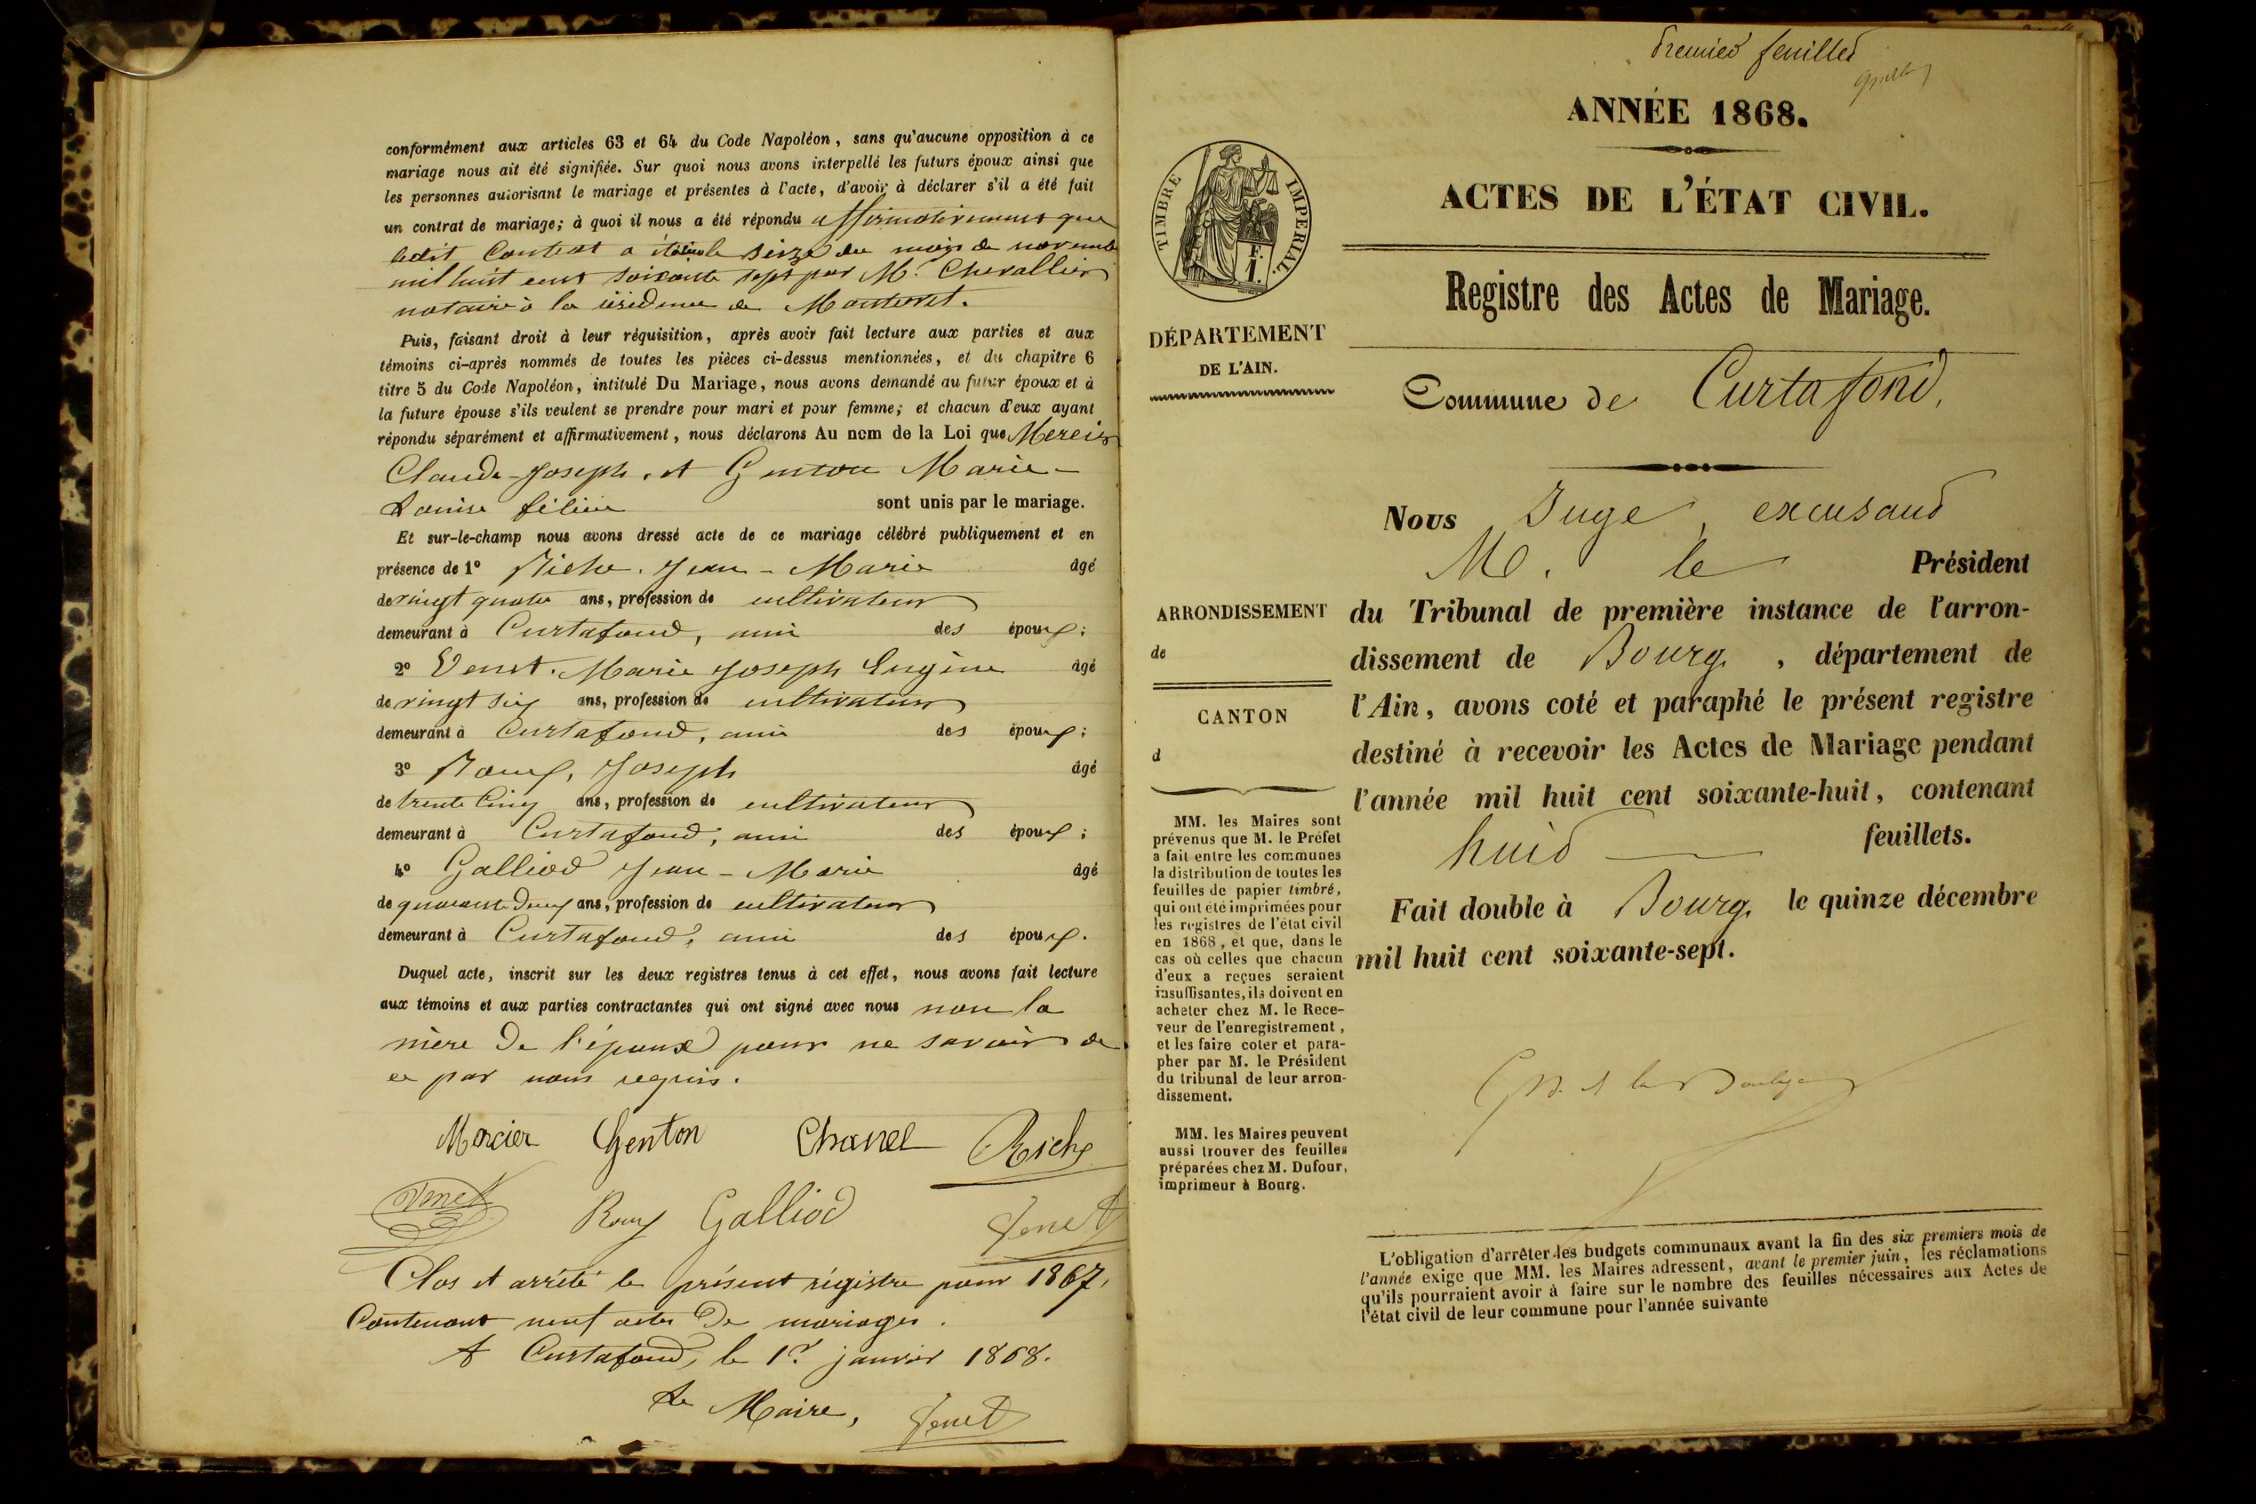 conformément aux articles 63 et 64 du Code Napoléon, sans qu'aucune opposition à ce
mariage nous ait été signifiée. Sur quoi nous avons interpellé les futurs époux ainsi que
les personnes autorisant le mariage et présentes à l'acte, d'avoir à déclarer s'il a été fait
un contrat de mariage; à quoi il nous a été répondu affirmativement que
ledit Contrat a été le seize du mois de novembre
mil huit cent soixante sept par M. Chevallier
notaire à la résidence de Montrevel.
Puis, faisant droit à leur réquisition, après avoir fait lecture aux parties et aux
témoins ci-après nommés de toutes les pièces ci-dessus mentionnées, et du chapitre 6
titre 5 du Code Napoléon, intitulé Du Mariage, nous avons demandé au futur époux et à
la future épouse s'ils veulent se prendre pour mari et pour femme; et chacun d'eux ayant
répondu séparément et affirmativement, nous déclarons Au nom de la Loi que Mercier
Claude-Joseph, et Genton Marie-
Louise sont unis par le mariage.
Et sur-le-champ nous avons dressé acte de ce mariage célébré publiquement et en
présence de 1º Riche Jean-Marie âgé
de vingt quatre ans, profession de cultivateur
demeurant à Curtafond, ami des époux;
2º Venet Marie Joseph Eugène âgé
de vingt six ans, profession de cultivateur
demeurant à Curtafond, ami des époux;
3º Roux, Joseph âgé
de trente cinq ans, profession de cultivateur
demeurant à Curtafond, ami des époux;
4º Galliod Jean-Marie âgé
de quarante deux ans, profession de cultivateur
demeurant à Curtafond, ami des époux.
Duquel acte, inscrit sur les deux registres tenus à cet effet, nous avons fait lecture
aux témoins et aux parties contractantes qui ont signé avec nous non la
mère de l'époux pour ne savoir de
ce par nous requis.
Mercier Genton Chanel Riche
Venet Roux Galliod
Clos et arrêté le présent régistre pour 1867,
Contenant neuf actes de mariages.
A Curtafond, le 1er janvier 1868.
Le Maire,
Premier feuillet
ANNÉE 1868.
ACTES DE L'ÉTAT CIVIL.
TIMBRE IMPERIAL.
F.
1.
Registre des Actes de Mariage.
DÉPARTEMENT
DE L'AIN.
Commune de Curtafond.
Nous Juge, excusant
M. le Président
ARRONDISSEMENT
de
CANTON
d
du Tribunal de première instance de l'arron-
dissement de Bourg, département de
l'Ain, avons coté et paraphé le présent registre
destiné à recevoir les Actes de Mariage pendant
l'année mil huit cent soixante-huit, contenant
huit feuillets.
Fait double à Bourg, le quinze décembre
mil huit cent soixante-sept.
MM. les Maires sont
prévenus que M. le Préfet
a fait entre les communes
la distribution de toutes les
feuilles de papier timbré,
qui ont été imprimées pour
les registres de l'état civil
en 1868, et que, dans le
cas où celles que chacun
d'eux a reçues seraient
insuffisantes, ils doivent en
acheter chez M. le Rece-
veur de l'enregistrement,
et les faire coter et para-
pher par M. le Président
du tribunal de leur arron-
dissement.
MM. les Maires peuvent
aussi trouver des feuilles
préparées chez M. Dufour,
imprimeur à Bourg.
L'obligation d'arrêter les budgets communaux avant la fin des six premiers mois de
l'année exige que MM. les Maires adressent, avant le premier juin, les réclamations
qu'ils pourraient avoir à faire sur le nombre des feuilles nécessaires aux Actes de
l'état civil de leur commune pour l'année suivante